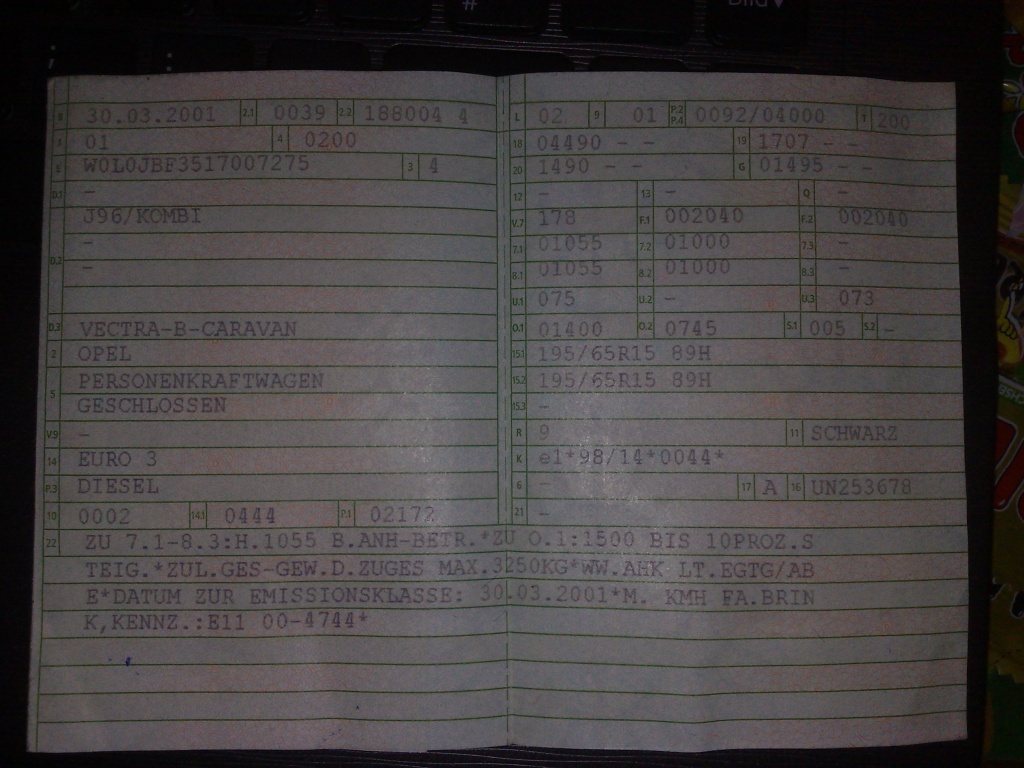 #
Bild▼
B 30.03.2001 2.1 0039 2.2 188004 4
J 01 4 0200
E W0L0JBF3517007275 3 4
D.1 -
J96/KOMBI
D.2 -
-
D.3 VECTRA-B-CARAVAN
2 OPEL
5 PERSONENKRAFTWAGEN
GESCHLOSSEN
V.9 -
14 EURO 3
P.3 DIESEL
10 0002 14.1 0444 P.1 02172
L 02 9 01 P.2 P.4 0092/04000 T 200
18 04490 - - 19 1707 - -
20 1490 - - G 01495 - -
12 - 13 - Q -
V.7 178 F.1 002040 F.2 002040
7.1 01055 7.2 01000 7.3 -
8.1 01055 8.2 01000 8.3 -
U.1 075 U.2 - U.3 073
O.1 01400 O.2 0745 S.1 005 S.2 -
15.1 195/65R15 89H
15.2 195/65R15 89H
15.3 -
R 9 11 SCHWARZ
K e1*98/14*0044*
6 - 17 A 16 UN253678
21 -
22 ZU 7.1-8.3:H.1055 B.ANH-BETR.*ZU O.1:1500 BIS 10PROZ.S
TEIG.*ZUL.GES-GEW.D.ZUGES MAX.3250KG*WW.AHK LT.EGTG/AB
E*DATUM ZUR EMISSIONSKLASSE: 30.03.2001*M. KMH FA.BRIN
K,KENNZ.:E11 00-4744*